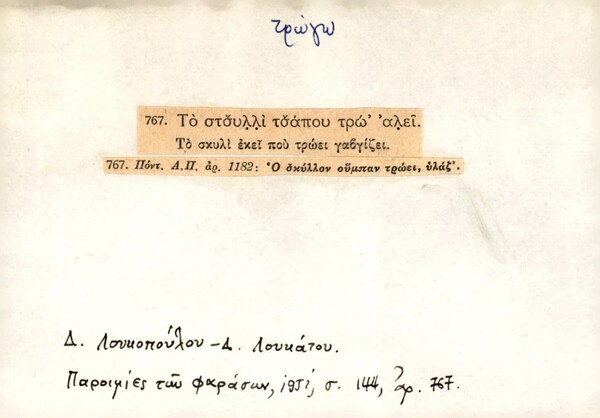 τρώγω
767. Τὸ στδ̌υλ̣λ̣ὶ τσ̌άπου τρώ’ ’αλ̣εῖ.
Τὸ σκυλὶ ἐκεῖ ποὺ τρώει γαβγίζει.
767. Πόντ. Α.Π. ἀρ. 1182: Ὁ σ̌κύλλον οὕμπαν τρώει, ὑλάζ’.
Δ. Λουκοπούλου – Δ. Λουκάτου.
Παροιμίες τῶν Φαράσων, 1951, σ. 144, ἀρ. 767.